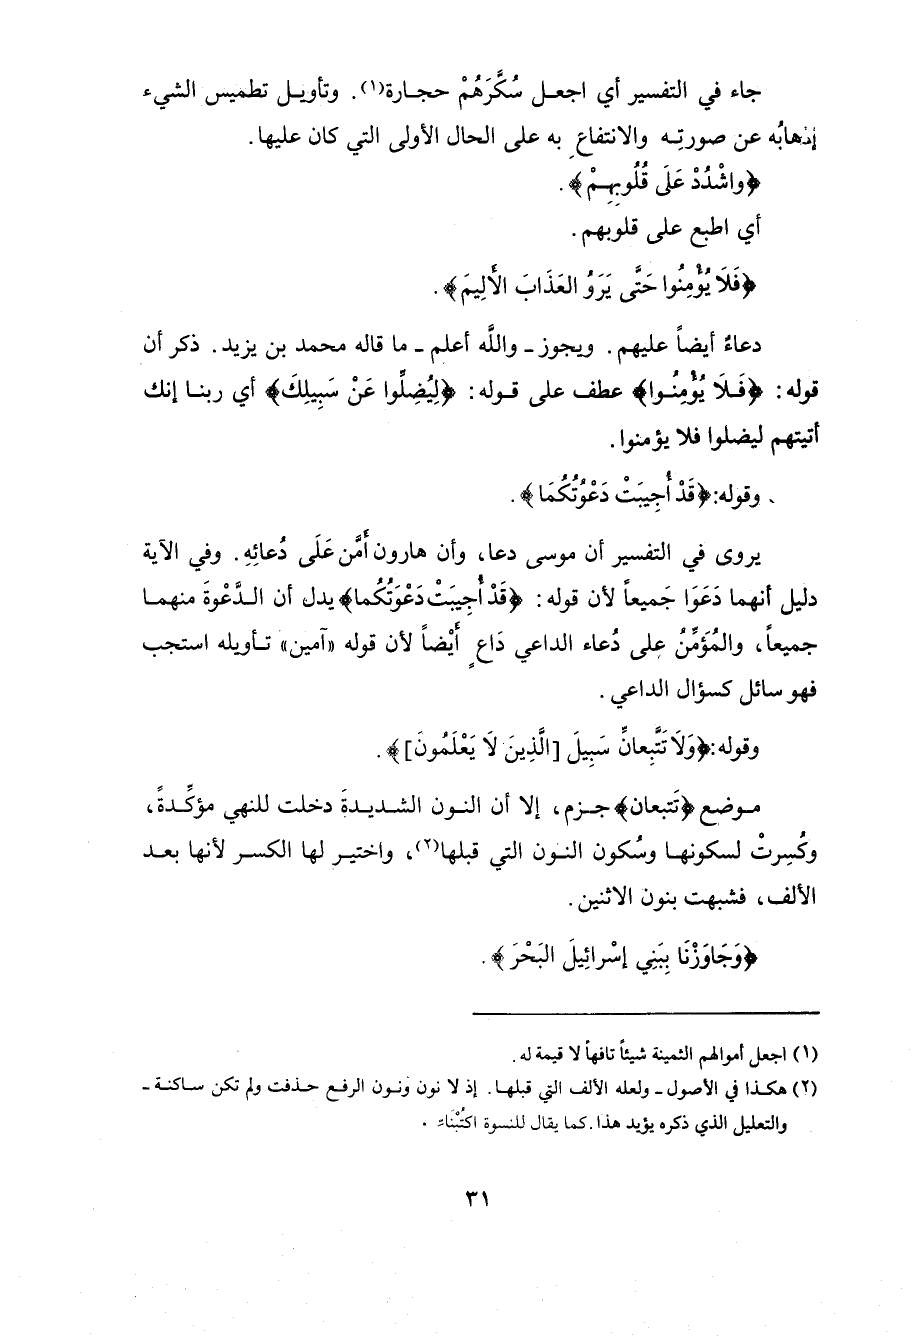 جاء في التفسير أي اجعل سُكَّرَهُمْ حجارة(١). وتأويل تطميس الشيء
إذهابُه عن صورتِه والانتفاعِ به على الحال الأولى التي كان عليها.
﴿واشْدُدْ عَلَى قُلُوبِهِمْ﴾.
أي اطبع على قلوبهم.
﴿فَلَا يُؤْمِنُوا حَتَّى يَرَوُ العَذَابَ الأَلِيمَ﴾.
دعاءٌ أيضاً عليهم. ويجوز ـ واللَّه أعلم ـ ما قاله محمد بن يزيد. ذكر أن
قوله: ﴿فَلَا يُؤْمِنُوا﴾ عطف على قوله: ﴿لِيُضِلُّوا عَنْ سَبِيلِكَ﴾ أي ربنا إنك
أتيتهم ليضلوا فلا يؤمنوا.
وقوله:﴿قَدْ أُجِيبَتْ دَعْوَتُكُمَا﴾.
يروى في التفسير أن موسى دعا، وأن هارون أَمَّن عَلَى دُعائِهِ. وفي الآية
دليل أنهما دَعَوَا جَميعاً لأن قوله: ﴿قَدْ أُجِيبَتْ دَعْوَتُكُما﴾ يدل أن الدَّعْوةَ منهما
جميعاً، والمُؤَمِّنُ على دُعاء الداعي دَاعٍ أَيْضاً لأن قوله «آمين» تأويله استجب
فهو سائل كسؤال الداعي.
وقوله:﴿وَلَا تَتَّبِعانِّ سَبِيلَ [الَّذِينَ لَا يَعْلَمُونَ]﴾.
موضع ﴿تَتبعان﴾ جزم، إلا أن النون الشديدةَ دخلت للنهي مؤكِّدةً،
وكُسِرتْ لسكونها وسُكون النون التي قبلها(٢)، واختير لها الكسر لأنها بعد
الألف، فشبهت بنون الاثنين.
﴿وَجَاوَزْنَا بِبَنِي إسْرائِيلَ البَحْرَ﴾.
(١) اجعل أموالهم الثمينة شيئاً تافهاً لا قيمة له.
(٢) هكذا في الأصول ـ ولعله الألف التي قبلها. إذ لا نون ونون الرفع حذفت ولم تكن ساكنة ـ
والتعليل الذي ذكره يؤيد هذا. كما يقال للنسوة
٣١